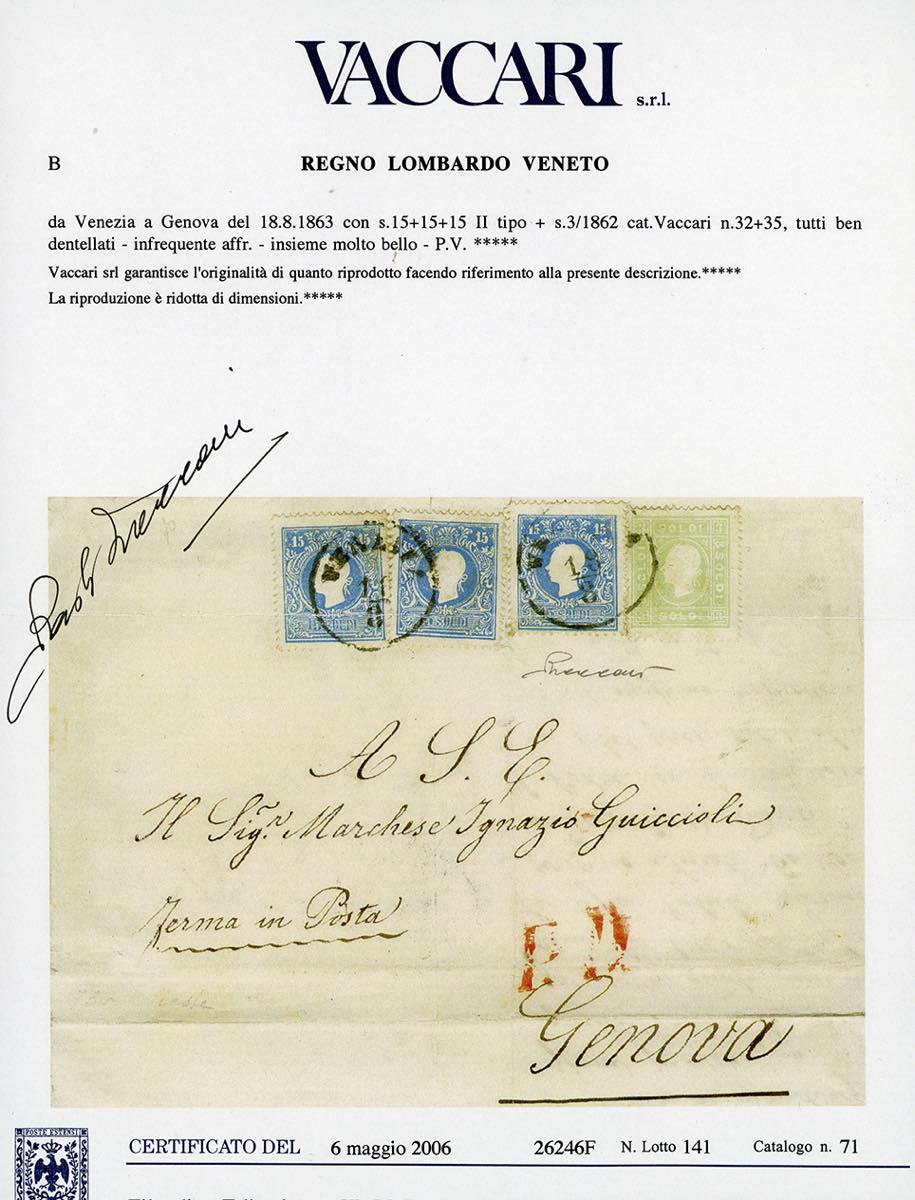 VACCARI s.r.l.
B REGNO LOMBARDO VENETO
da Venezia a Genova del 18.8.1863 con s.15+15+15 II tipo + s.3/1862 cat.Vaccari n.32+35, tutti ben
dentellati - infrequente affr. - insieme molto bello - P.V. *****
Vaccari srl garantisce l'originalità di quanto riprodotto facendo riferimento alla presente descrizione.*****
La riproduzione è ridotta di dimensioni.*****
15 15 15 15 SOLDI
SOLDI SOLDI
A S. E.
Il Sigr. Marchese Ignazio Guiccioli
Ferma in Posta
P.D.
Genova
POSTE ESTENSI
CERTIFICATO DEL 6 maggio 2006 26246F N. Lotto 141 Catalogo n. 71